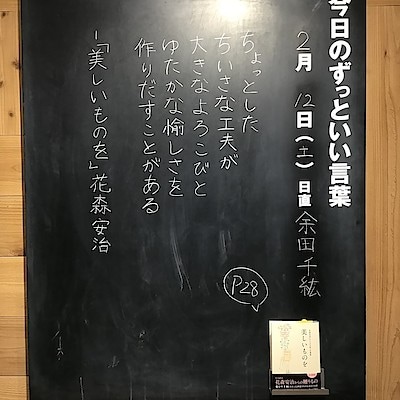 今日のずっといい言葉
2月12日(土)日直 余田千紘
ちょっとした
ちいさな工夫が
大きなよろこびと
ゆたかな愉しさを
作りだすことがある
ー「美しいものを」花森安治
P28
美しいものを
花森安治からの贈りもの